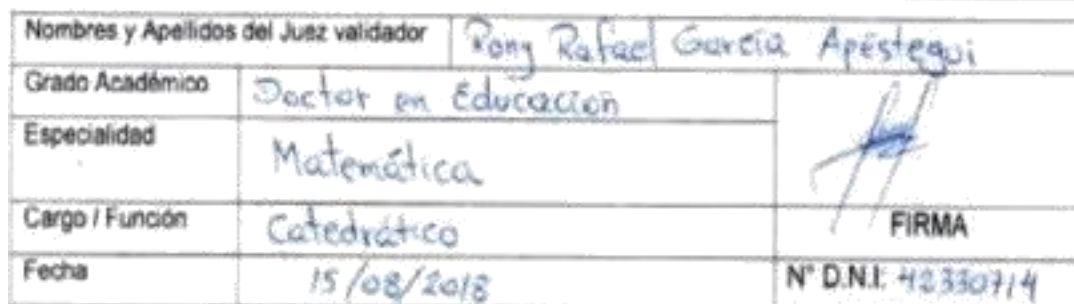 Nombres y Apellidos del Juez validador Rony Rafael García Apéstegui
Grado Académico Doctor en Educación
Especialidad Matemática
Cargo / Función Catedrático
FIRMA
Fecha 15/08/2018
N° D.N.I: 42330714